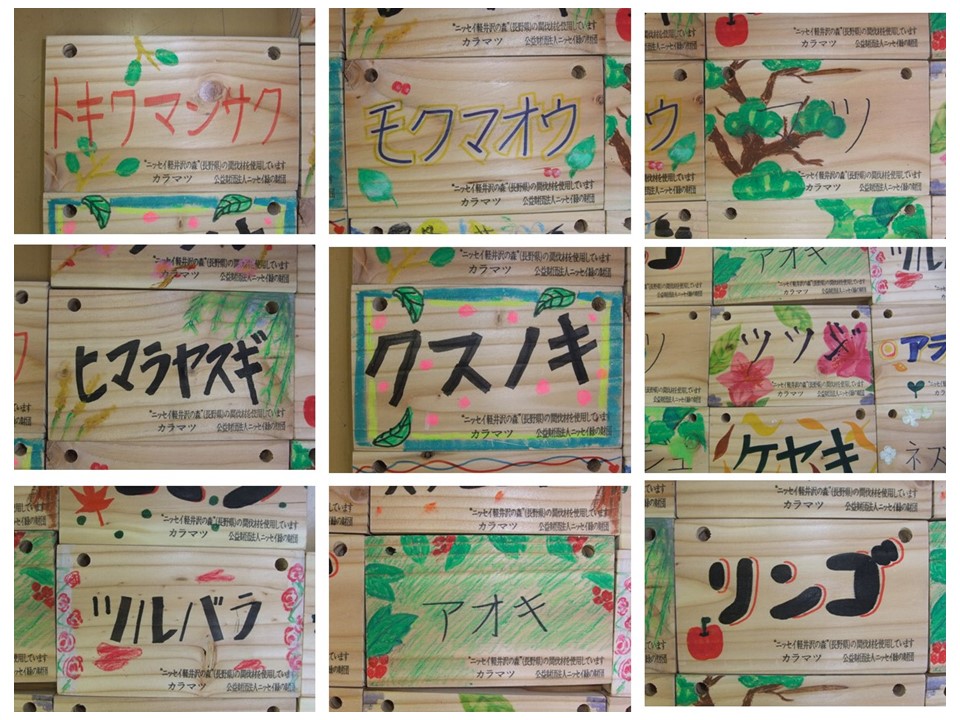 トキワマンサク
"ニッセイ軽井沢の森"(長野県)の間伐材を使用しています
カラマツ 公益財団法人ニッセイ緑の財団
"ニッセイ軽井沢の森"(長野県)の間伐材を使用しています
カラマツ 公益財団法人ニッセイ緑の財団
モクマオウ
"ニッセイ軽井沢の森"(長野県)の間伐材を使用しています
カラマツ 公益財団法人ニッセイ緑の財団
"ニッセイ軽井沢の森"(長野県)の間伐材を使用しています
カラマツ 公益財団法人ニッセイ緑の財団
ウ
マツ
"ニッセイ軽井沢の森"(長野県)の間伐材を使用しています
カラマツ 公益財団法人ニッセイ緑の財団
"ニッセイ軽井沢の森"(長野県)の間伐材を使用しています
カラマツ 公益財団法人ニッセイ緑の財団
ヒマラヤスギ
"ニッセイ軽井沢の森"(長野県)の間伐材を使用しています
カラマツ 公益財団法人ニッセイ緑の財団
カラマツ 公益財団法人ニッセイ緑の財団
クスノキ
"ニッセイ軽井沢の森"(長野県)の間伐材を使用しています
カラマツ 公益財団法人ニッセイ緑の財団
アオキ
ツル
カラマツ
ツツジ
アラ
カラマツ
ケヤキ
ネズ
"ニッセイ軽井沢の森"(長野県)の間伐材を使用しています
カラマツ 公益財団法人ニッセイ緑の財団
ツルバラ
"ニッセイ軽井沢の森"(長野県)の間伐材を使用しています
カラマツ 公益財団法人ニッセイ緑の財団
"ニッセイ軽井沢の森"(長野県)の間伐材を使用しています
カラマツ 公益財団法人ニッセイ緑の財団
アオキ
"ニッセイ軽井沢の森"(長野県)の間伐材を使用しています
カラマツ 公益財団法人ニッセイ緑の財団
"ニッセイ軽井沢の森"(長野県)の間伐材を使用しています
カラマツ 公益財団法人ニッセイ緑の財団
リンゴ
"ニッセイ軽井沢の森"(長野県)の間伐材を使用しています
カラマツ 公益財団法人ニッセイ緑の財団